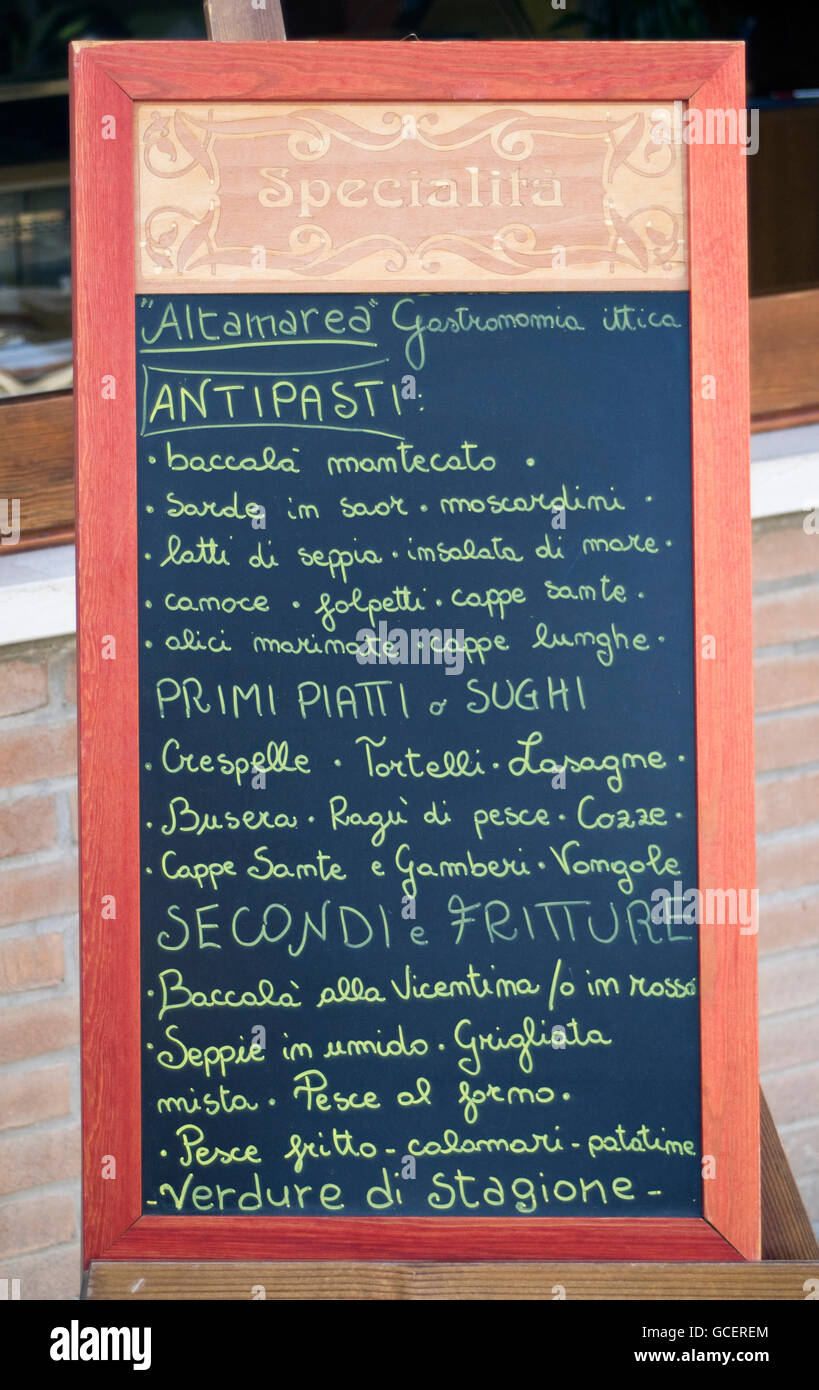 Specialità
"Altamarea" Gastronomia ittica
ANTIPASTI:
• baccalà mantecato •
• sarde in saor • moscardini •
• latti di seppia • insalata di mare •
• canoce • folpetti • cappe sante •
• alici marinate • cappe lunghe •
PRIMI PIATTI o SUGHI
• Crespelle • Tortelli • Lasagne •
• Busera • Ragù di pesce • Cozze •
• Cappe Sante e Gamberi • Vongole
SECONDI e FRITTURE
• Baccalà alla Vicentina /o in rosso
• Seppie in umido • Grigliata
mista • Pesce al forno •
• Pesce fritto - calamari - patatine
- Verdure di stagione -
alamy stock photo
GCEREM
www.alamy.com